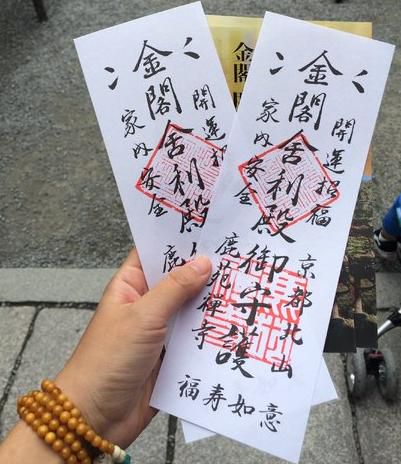 開運招
金閣舎利殿
家内安全
鹿
金閣
開運招福
京都北山
金閣舎利殿御守護
家内安全
鹿苑禪寺
福寿如意